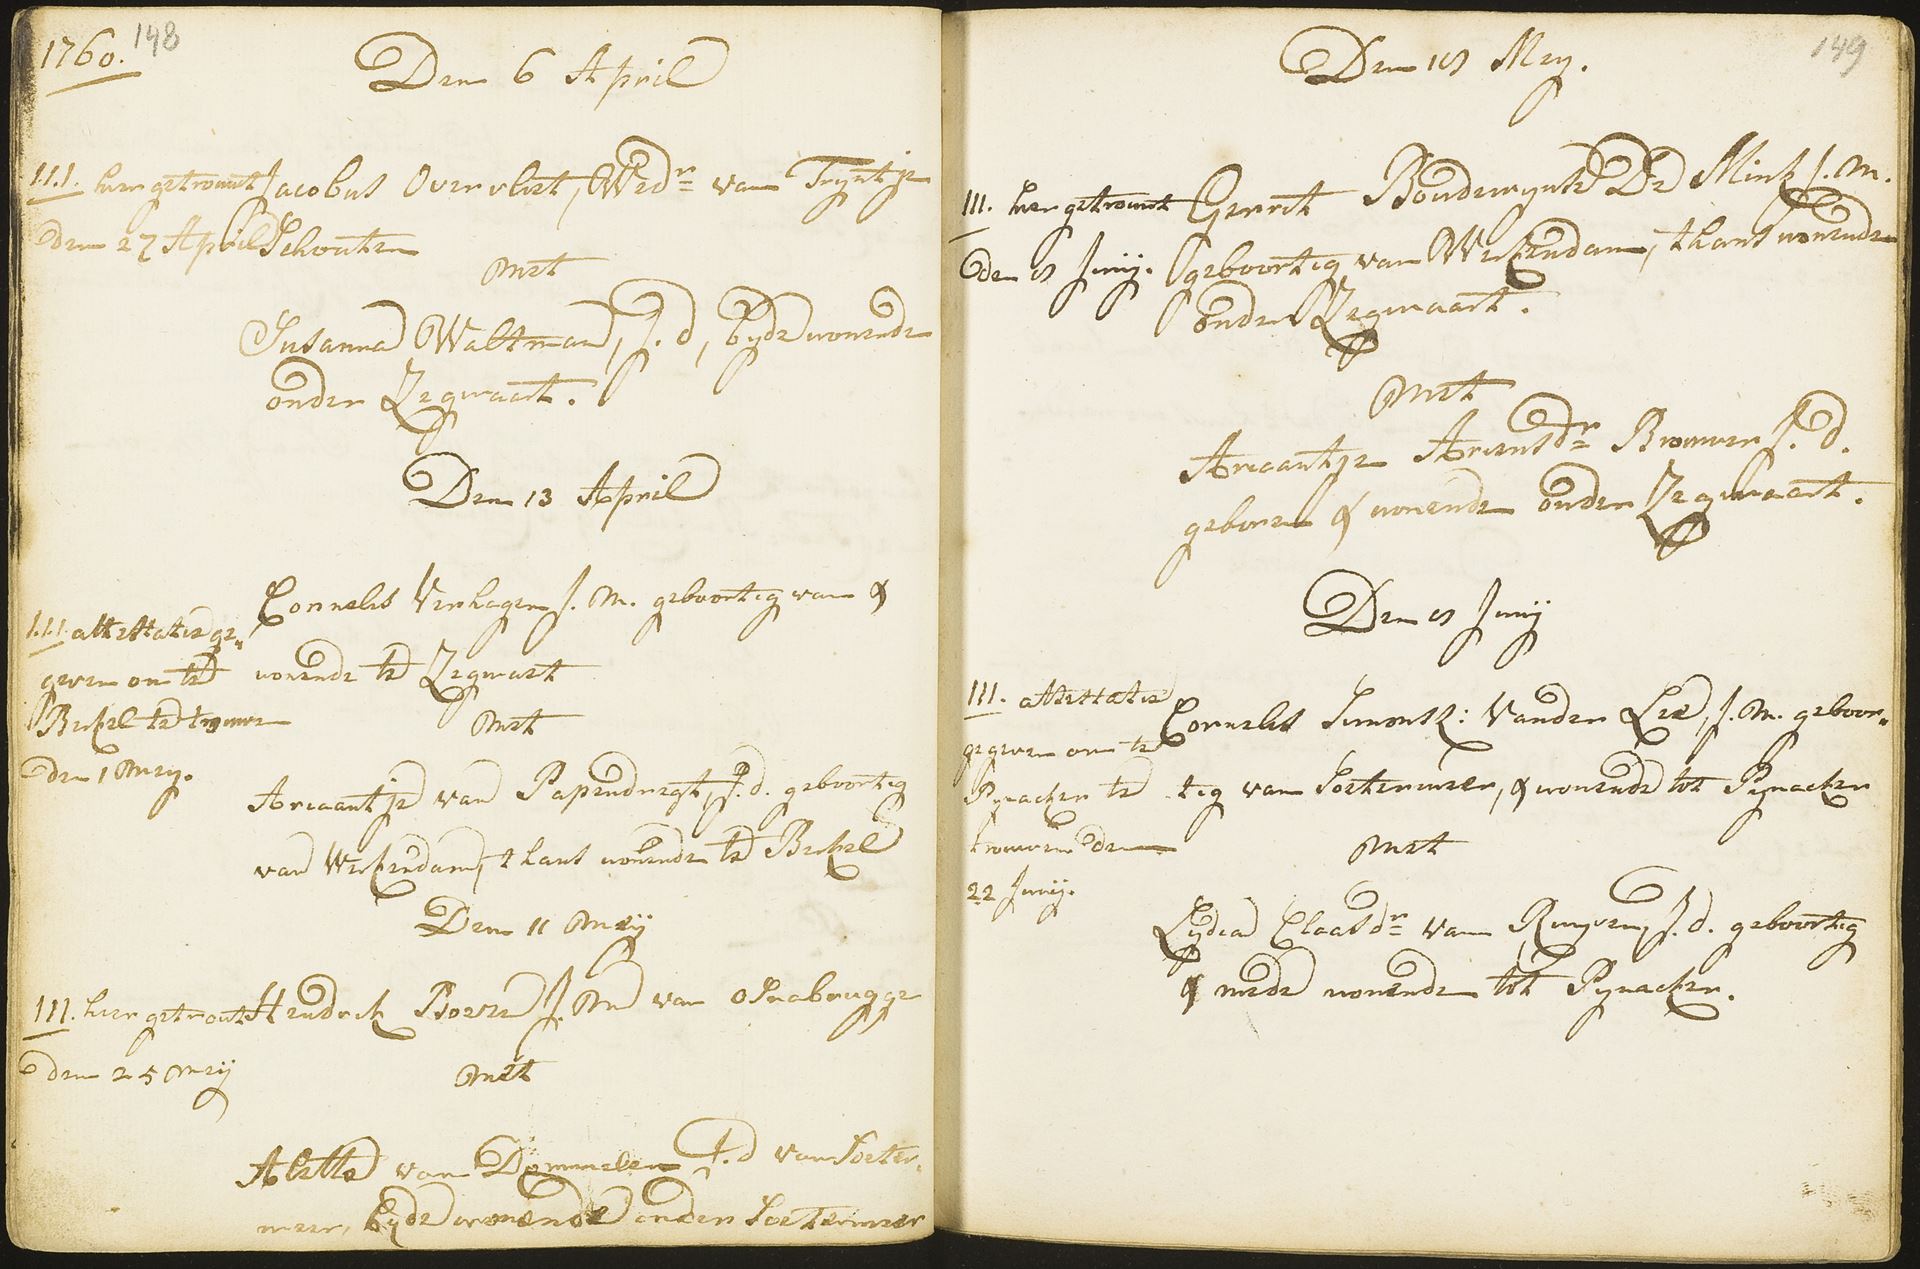 1760. 148
Den 6 April
111. hier getrouwt Jacobus Overvliet, Wedr van Tryntje
den 27 April Schouten
met
Susanna Waltman, J. d, byde wonende
onder Zegwaart.
Den 13 April
Cornelis Verhagen J. M. geboortig van &
111. attestatie ge„
geven om te wonende te Zegwaert
Berkel te trouwen met
den 1 Mey.
Ariaantje van Papendregt, J. d. geboortig
van Werkendam, thans wonende te Berkel
Den 11 Meij
111. hier getrout Hendrik Boere J. M van Osnabrugge
den 25 Meij met
Aletta van Dommelen J. d van Soeter„
meer, byde wonende onder Soetermeer
149
Den 18 Mey.
111. hier getrouwt Gerrit Boudewynse De Mink J. M.
den 8 Junij. geboortig van Werkendam, thans wonende
onder Zegwaart.
met
Ariaantje Ariensdr Brouwer J. d.
geboren & wonende onder Zegwaart.
Den 8 Junij
111. attestatie Cornelis Simonsz: Vander Lee, J. M. geboor„
gegeven om te
Pynacker te tig van Soetermeer, & wonende tot Pynacker
trouwen den met
22 Junij.
Lydia Claasdr van Ruyven, J. d. geboortig
& mede wonende tot Pynacker.